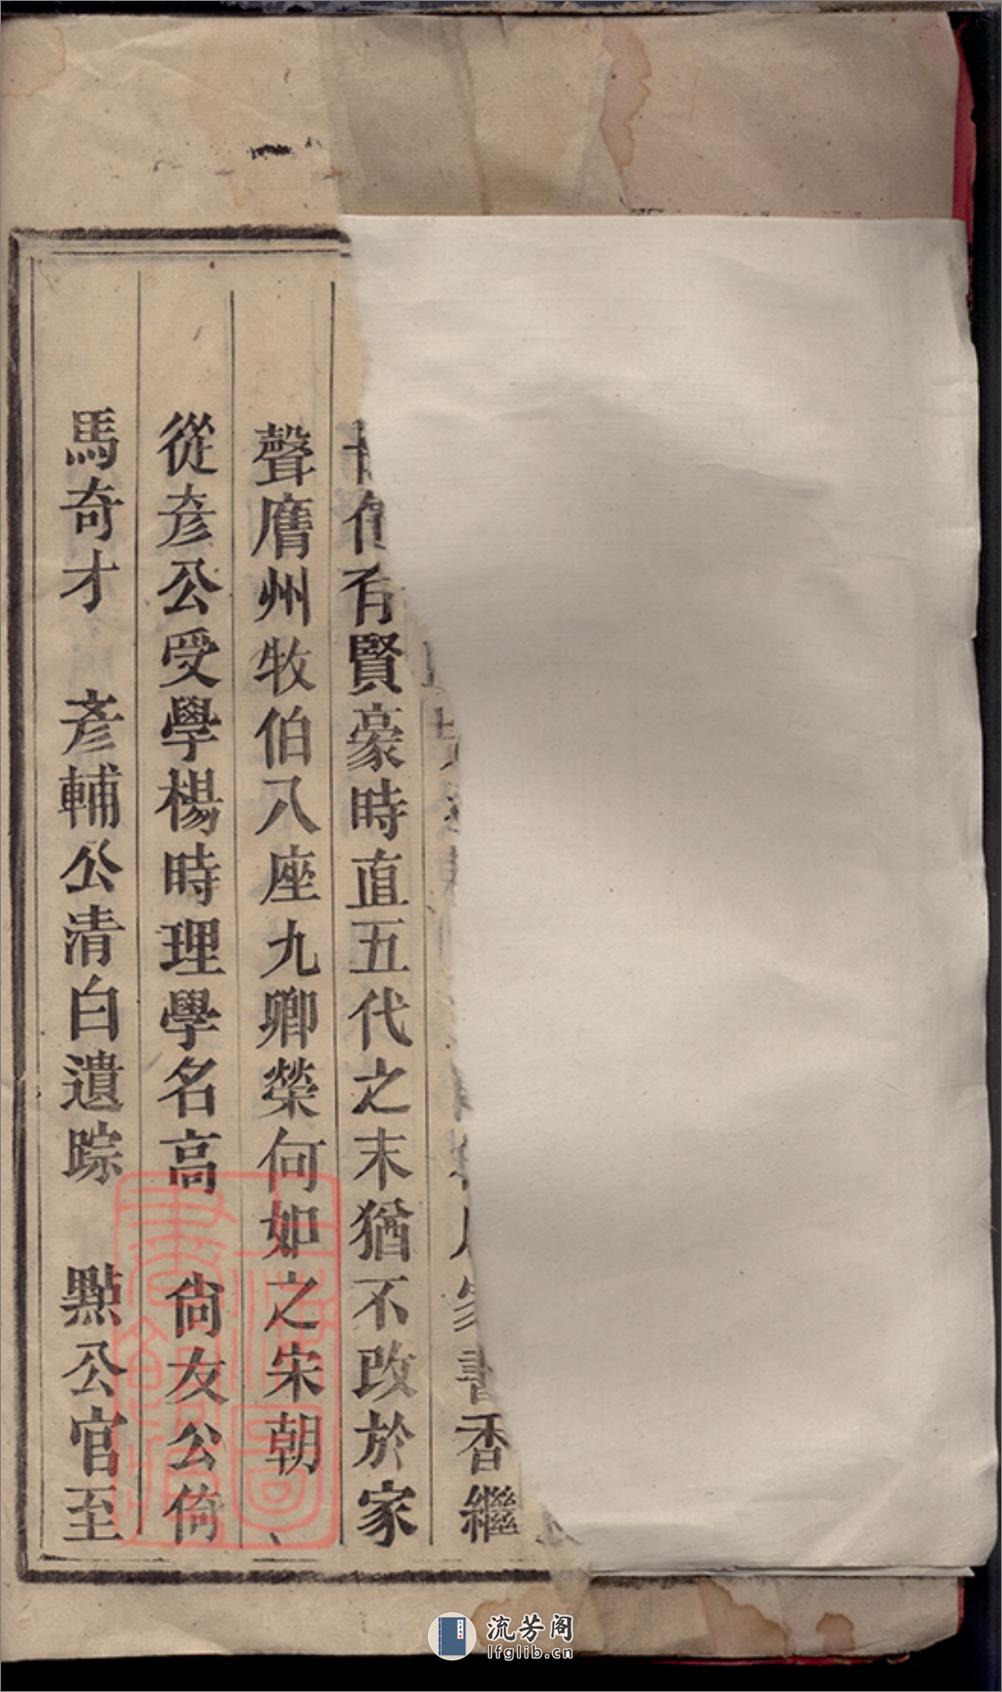 書香繼
有賢豪時直五代之末猶不改於家
聲膺州牧伯八座九卿榮何如之宋朝
從彥公受學楊時理學名高　尙友公倚
馬奇才　彥輔公清白遺踪　點公官至
上海圖書館藏
流芳阁
lfglib.cn